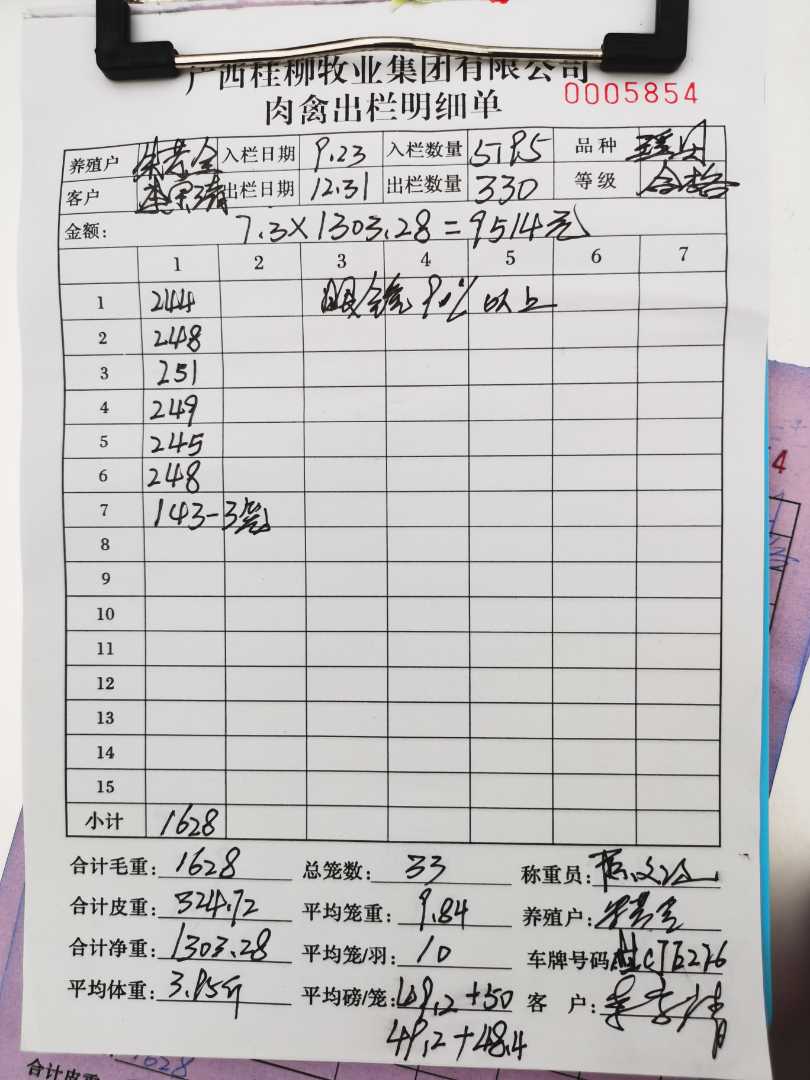 广西桂柳牧业集团有限公司
肉禽出栏明细单 0005854
养殖户 入栏日期 9.23 入栏数量 5195 品种
客户 出栏日期 12.31 出栏数量 330 等级 合格
金额: 7.3×1303.28=9514元
1 2 3 4 5 6 7
1 244 90%以上
2 248
3 251
4 249
5 245
6 248
7 143-3笼
8
9
10
11
12
13
14
15
小计 1628
合计毛重: 1628 总笼数: 33 称重员:
合计皮重: 324.72 平均笼重: 9.84 养殖户:
合计净重: 1303.28 平均笼/羽: 10 车牌号码
平均体重: 3.95斤 平均磅/笼: 49.2+50 客 户:
49.2+48.4
1628
合计皮重